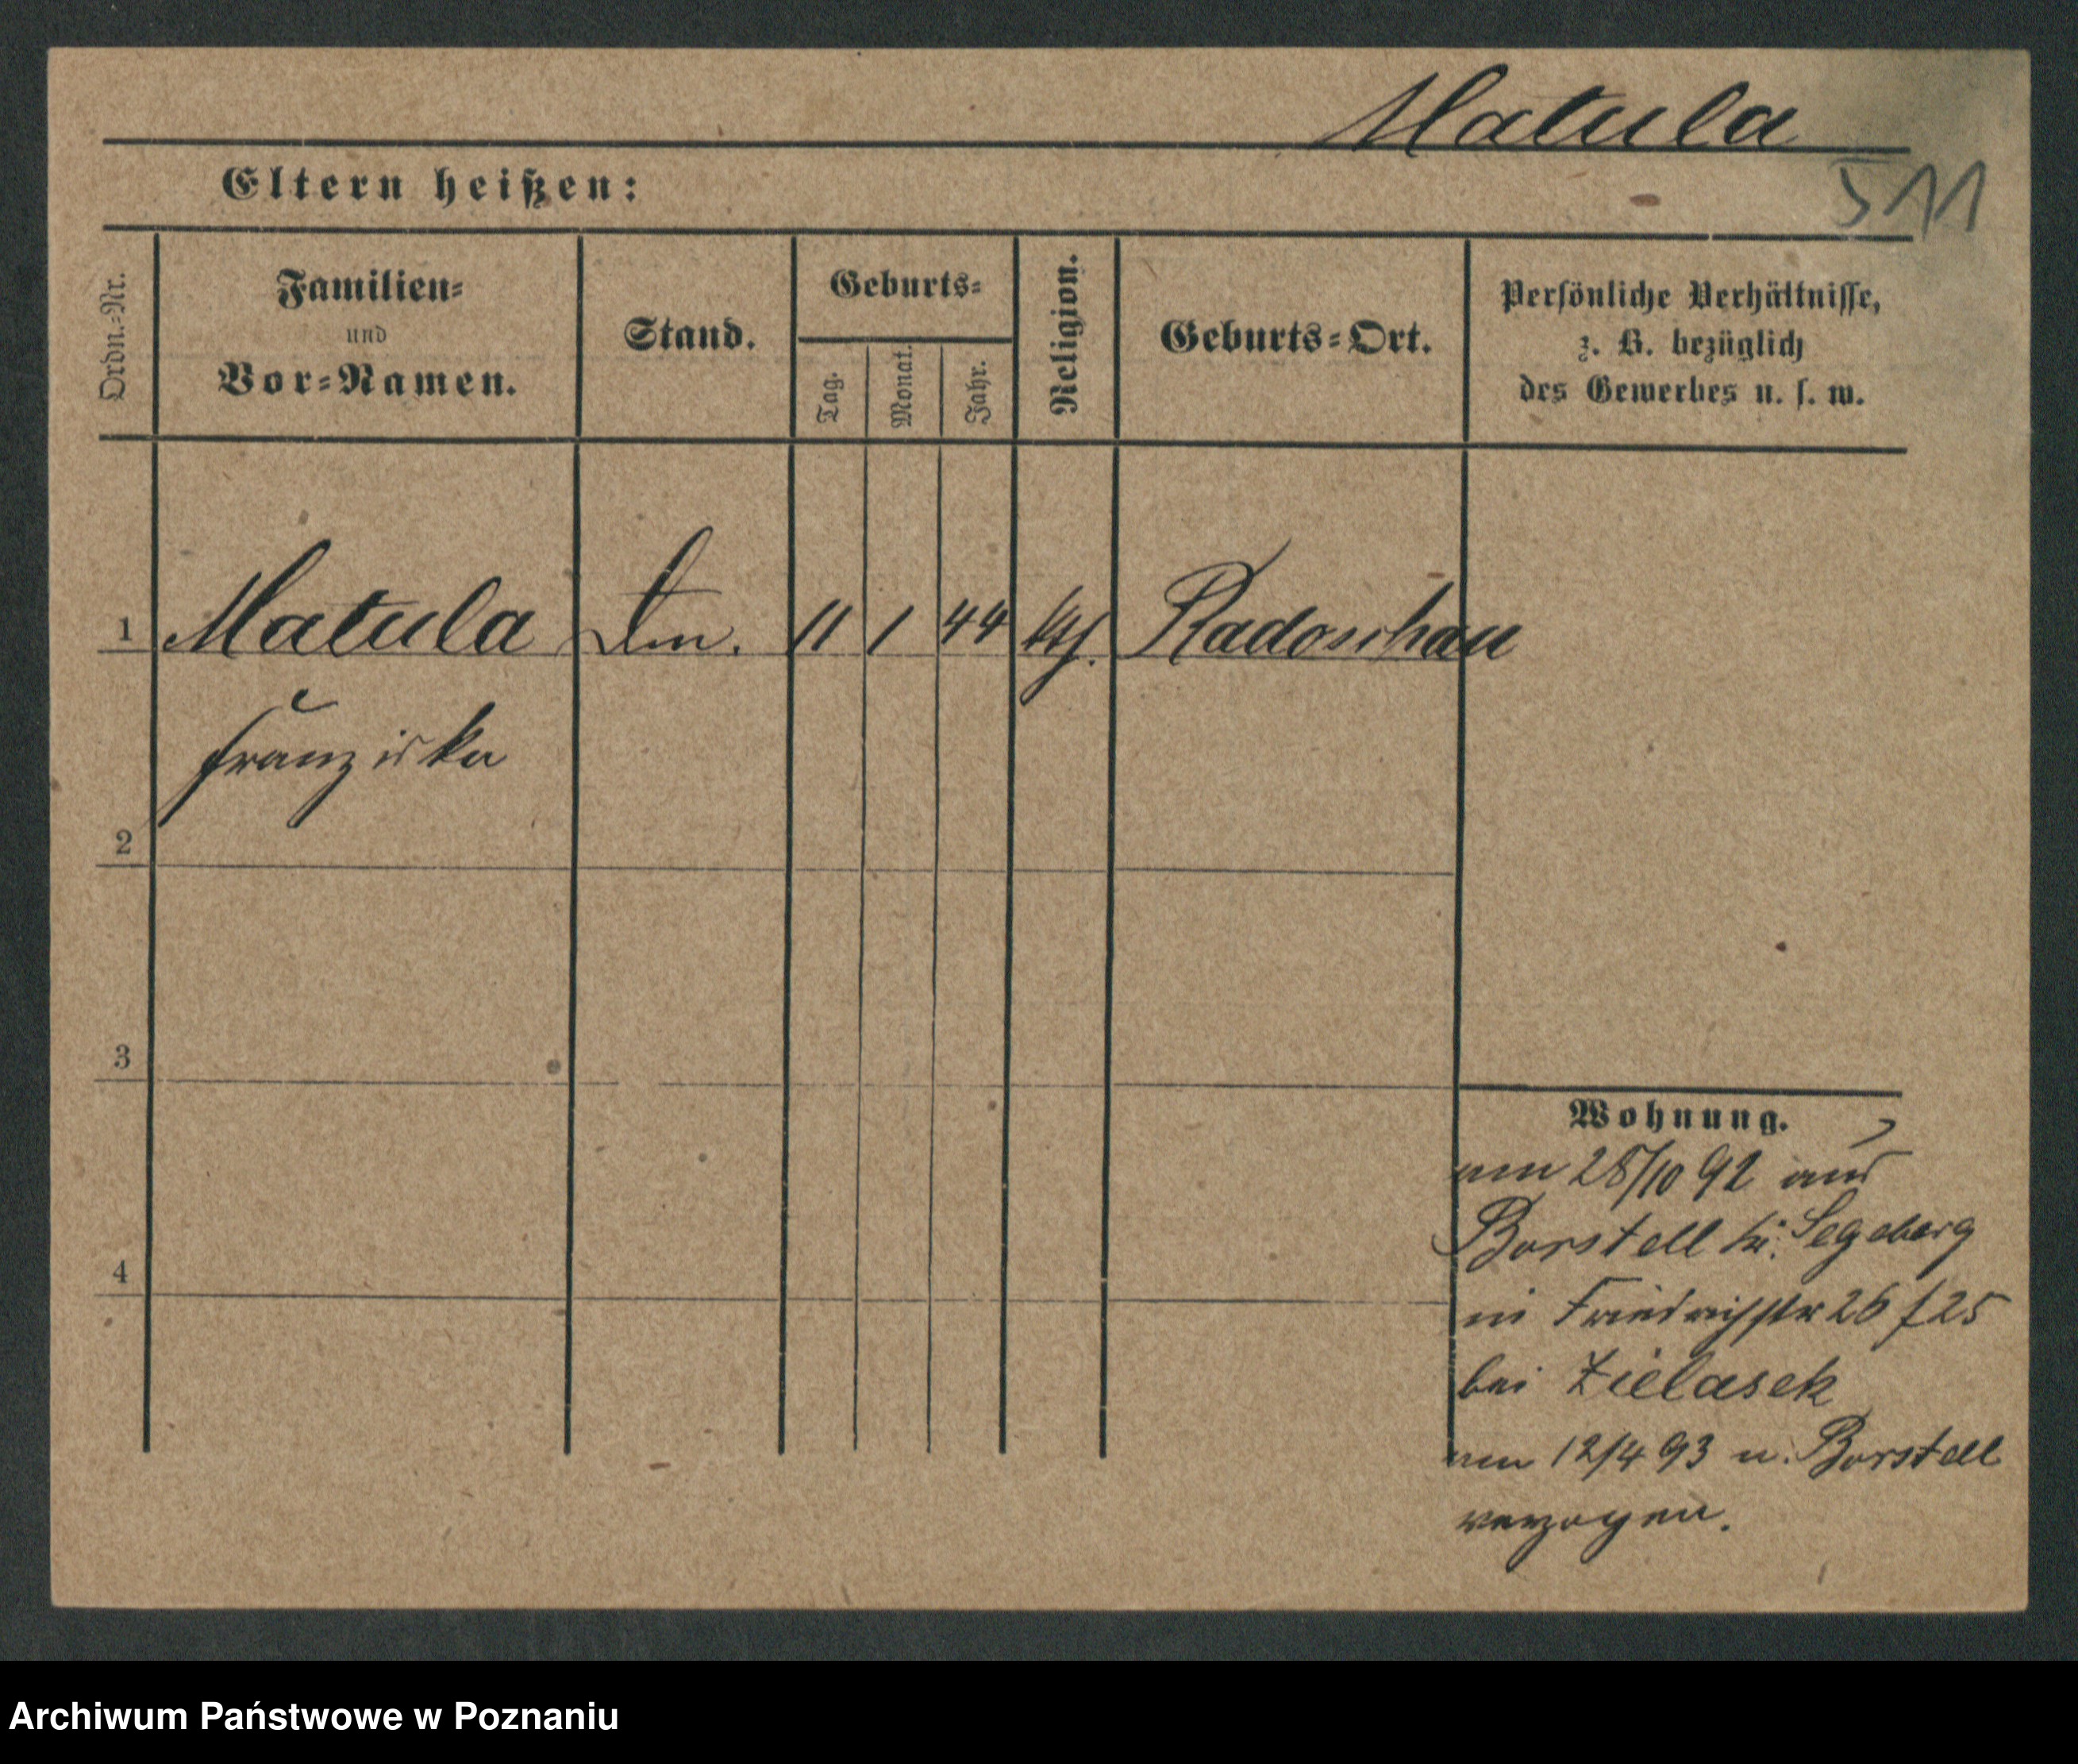 Matula
511
Eltern heißen:
Ordn.-Nr.
Familien-
und
Vor-Namen.
Stand.
Geburts-
Tag.
Monat.
Jahr.
Religion.
Geburts-Ort.
Persönliche Verhältnisse,
z. B. bezüglich
des Gewerbes u. s. w.
1 Matula 11 1 44 kth. Radoschau
Franziska
2
3
4
Wohnung.
am 28/10 92 aus
Borstell kr. Segeberg
in Friedrichstr 26 f 25
bei Zielasek
am 12/4 93 n. Borstell
verzogen.
Archiwum Państwowe w Poznaniu